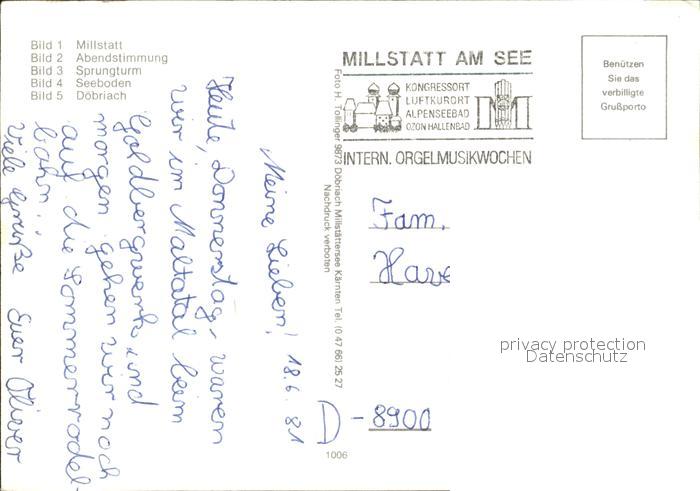 Bild 1 Millstatt
Bild 2 Abendstimmung
Bild 3 Sprungturm
Bild 4 Seeboden
Bild 5 Döbriach
MILLSTATT AM SEE
KONGRESSORT
LUFTKURORT
ALPENSEEBAD
OZON HALLENBAD
INTERN. ORGELMUSIKWOCHEN
Benützen
Sie das
verbilligte
Grußporto
Foto H. Tollinger 9873 Döbriach Millstättersee Kärnten Tel. (0 47 66) 25 27
Nachdruck verboten
Meine Lieben! 18.6.81
Heute, Donnerstag, waren
wir im Maltatal beim
Goldbergwerk, und
morgen gehen wir noch
auf die Sommerrodel-
bahn.
Viele Grüße Euer Oliver
Fam.
D-8900
privacy protection
Datenschutz
1006